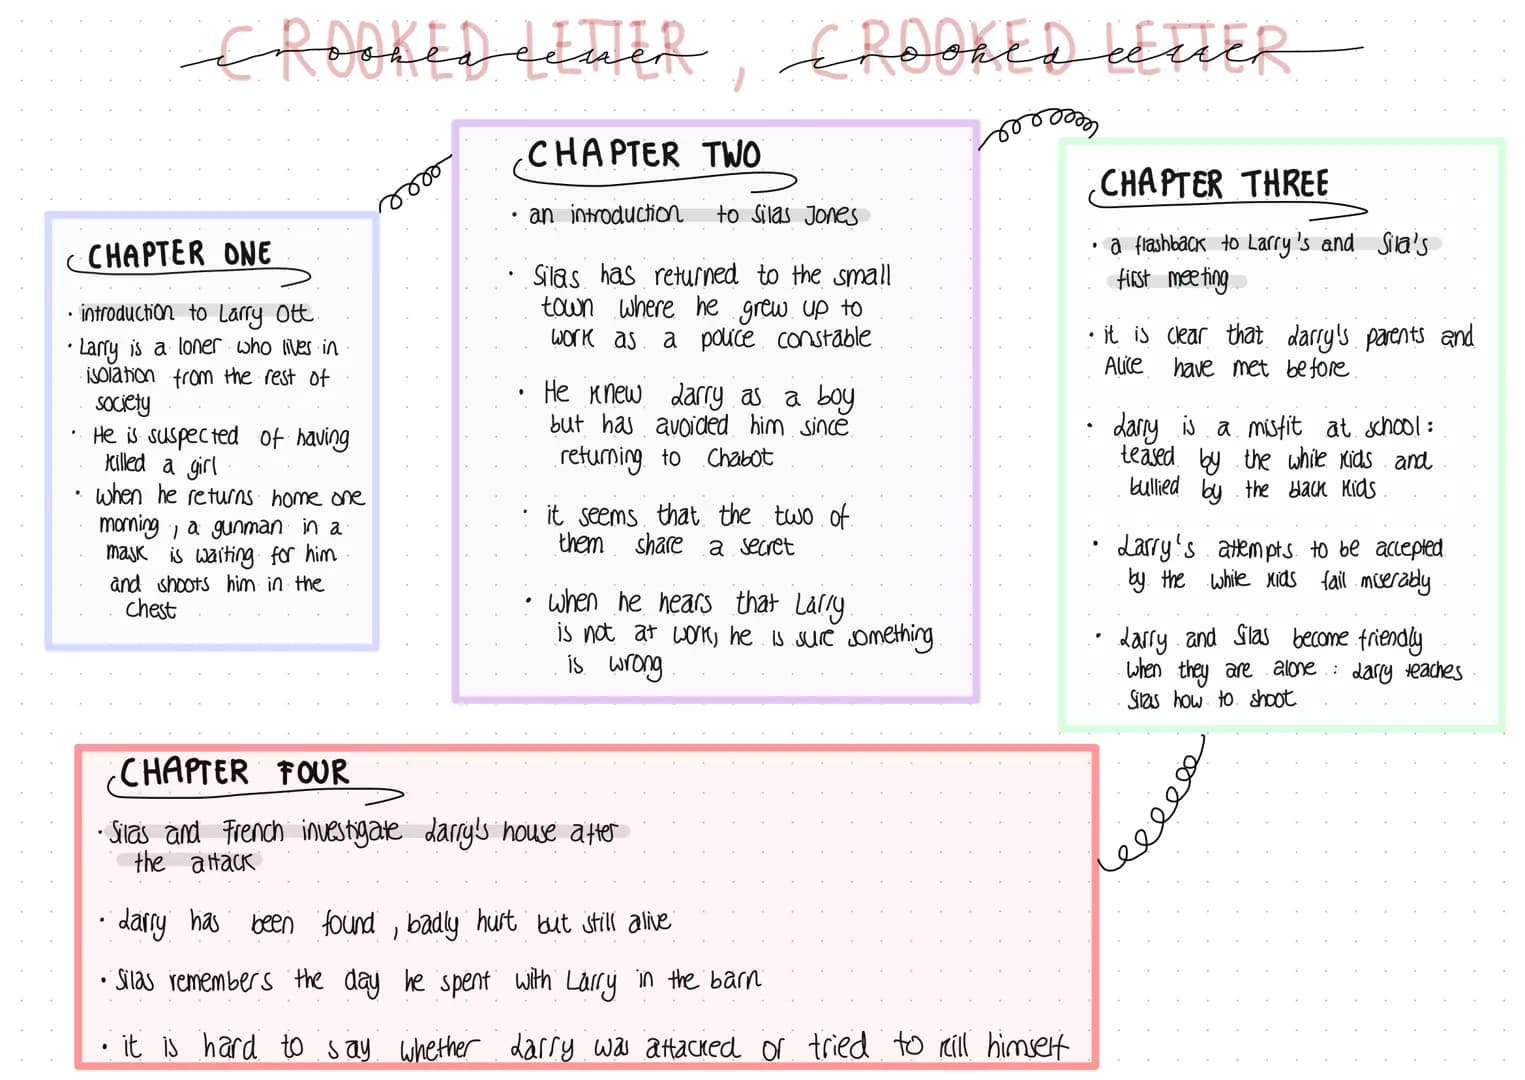 CROOKED LETTER, CROOKED LETTER
crooked letter crooked letter
CHAPTER ONE
· introduction to Larry Ott
· Larry is a loner who lives in
isolation from the rest of
society
· He is suspected of having
killed a girl
· when he returns home one
morning, a gunman in a
mask is waiting for him
and shoots him in the
chest
CHAPTER TWO
· an introduction to Silas Jones
· Silas has returned to the small
town where he grew up to
work as a police constable
· He knew Larry as a boy
but has avoided him since
returning to Chabot
· it seems that the two of
them share a secret
· when he hears that Larry
is not at work, he is sure something
is wrong
CHAPTER THREE
· a flashback to Larry's and Sila's
first meeting
· it is clear that Larry's parents and
Alice have met before
· Larry is a misfit at school:
teased by the white kids and
bullied by the black kids
· Larry's attempts to be accepted
by the white kids fail miserably
· Larry and Silas become friendly
when they are alone: Larry teaches
Silas how to shoot
CHAPTER FOUR
· Silas and French investigate Larry's house after
the attack
· Larry has been found, badly hurt but still alive
· Silas remembers the day he spent with Larry in the barn
· it is hard to say whether Larry was attacked or tried to kill himself